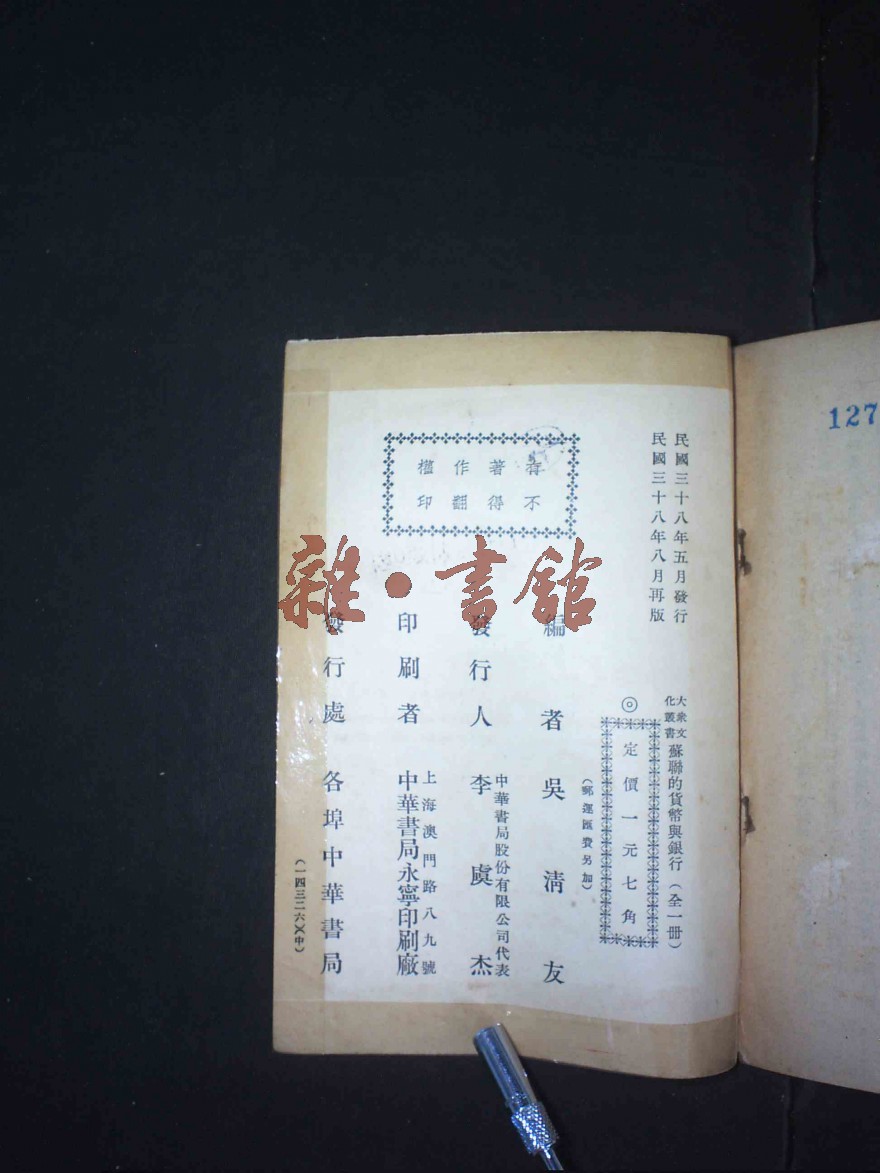 民國三十八年五月發行
民國三十八年八月再版
大衆文化叢書 蘇聯的貨幣與銀行（全一冊）
◎定價一元七角
（郵運匯費另加）
有著作權
不得翻印
編者 吳清友
發行人 中華書局股份有限公司代表
李虞杰
印刷者 上海澳門路八九號
中華書局永寧印刷廠
發行處 各埠中華書局
（一四三二六）（中）
雜·書館
127